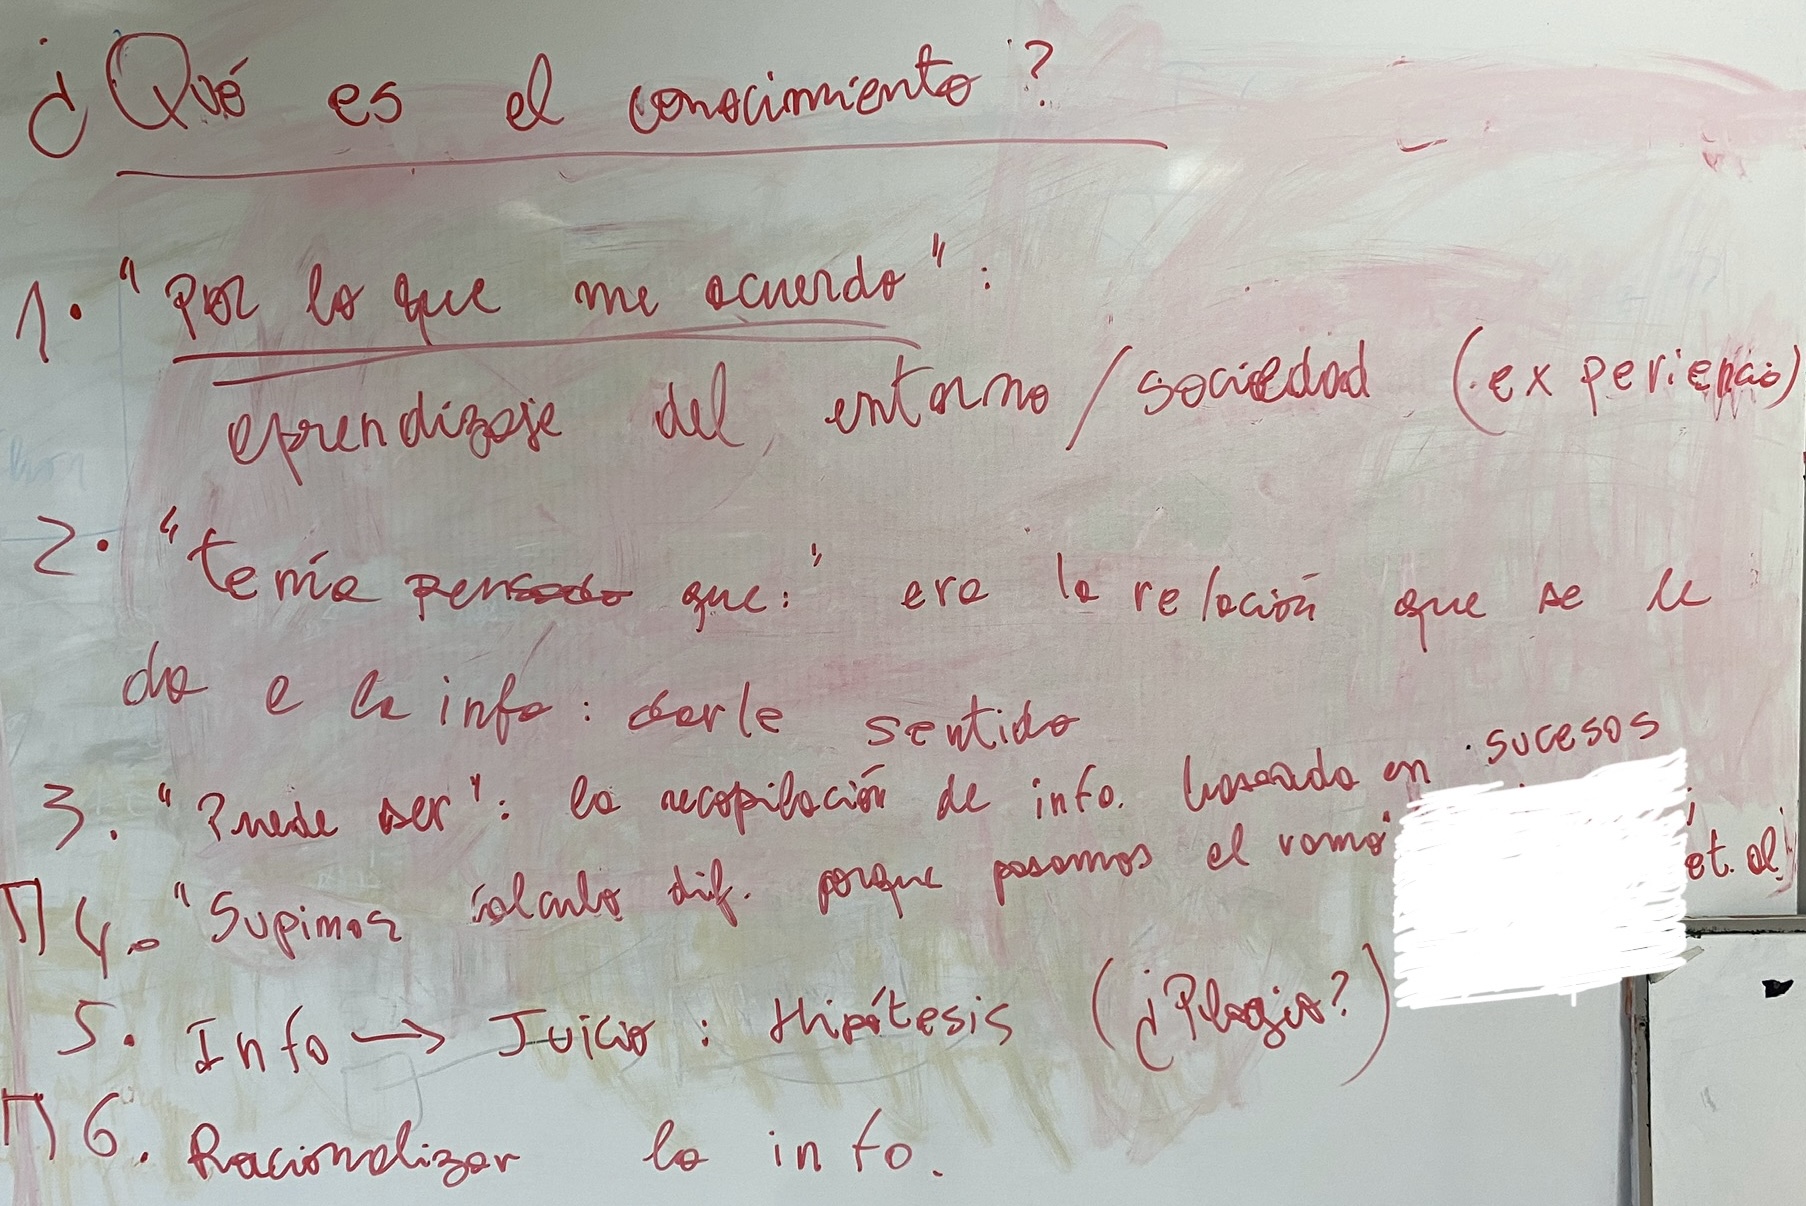 ¿Qué es el conocimiento?
1. "Por lo que me acuerdo":
aprendizaje del entorno / sociedad (experiencia)
2. "tenía pensado que:" era la relación que se le
da a la info: darle sentido
3. "Puede ser": la recopilación de info. basada en sucesos
4. "Supimos cálculo dif. porque pasamos el ramo" et. al)
5. Info → Juicio: Hipótesis (¿Plagio?)
6. Racionalizar la info.